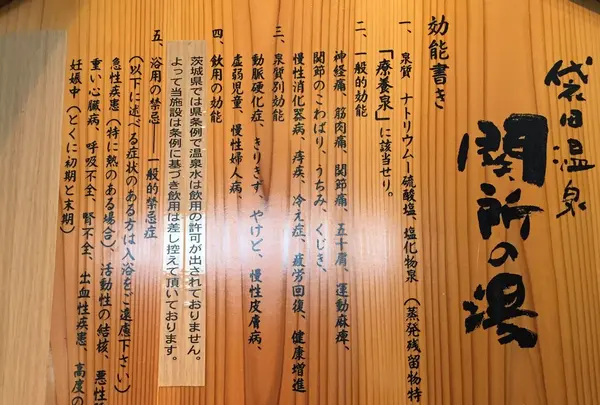 袋田温泉
関所の湯
効能書き
一、泉質 ナトリウム―硫酸塩、塩化物泉(蒸発残留物特
「療養泉」に該当せり。
二、一般的効能
神経痛、筋肉痛、関節痛、五十肩、運動麻痺、
関節のこわばり、うちみ、くじき、
慢性消化器病、痔疾、冷え症、疲労回復、健康増進
三、泉質別効能
動脈硬化症、きりきず、やけど、慢性皮膚病、
虚弱児童、慢性婦人病、
四、飲用の効能
茨城県では県条例で温泉水は飲用の許可が出されておりません。
よって当施設は条例に基づき飲用は差し控えて頂いております。
五、浴用の禁忌―一般的禁忌症
(以下に述べる症状のある方は入浴をご遠慮下さい)
急性疾患(特に熱のある場合)、活動性の結核、悪性
重い心臓病、呼吸不全、腎不全、出血性疾患、高度の
妊娠中(とくに初期と末期)